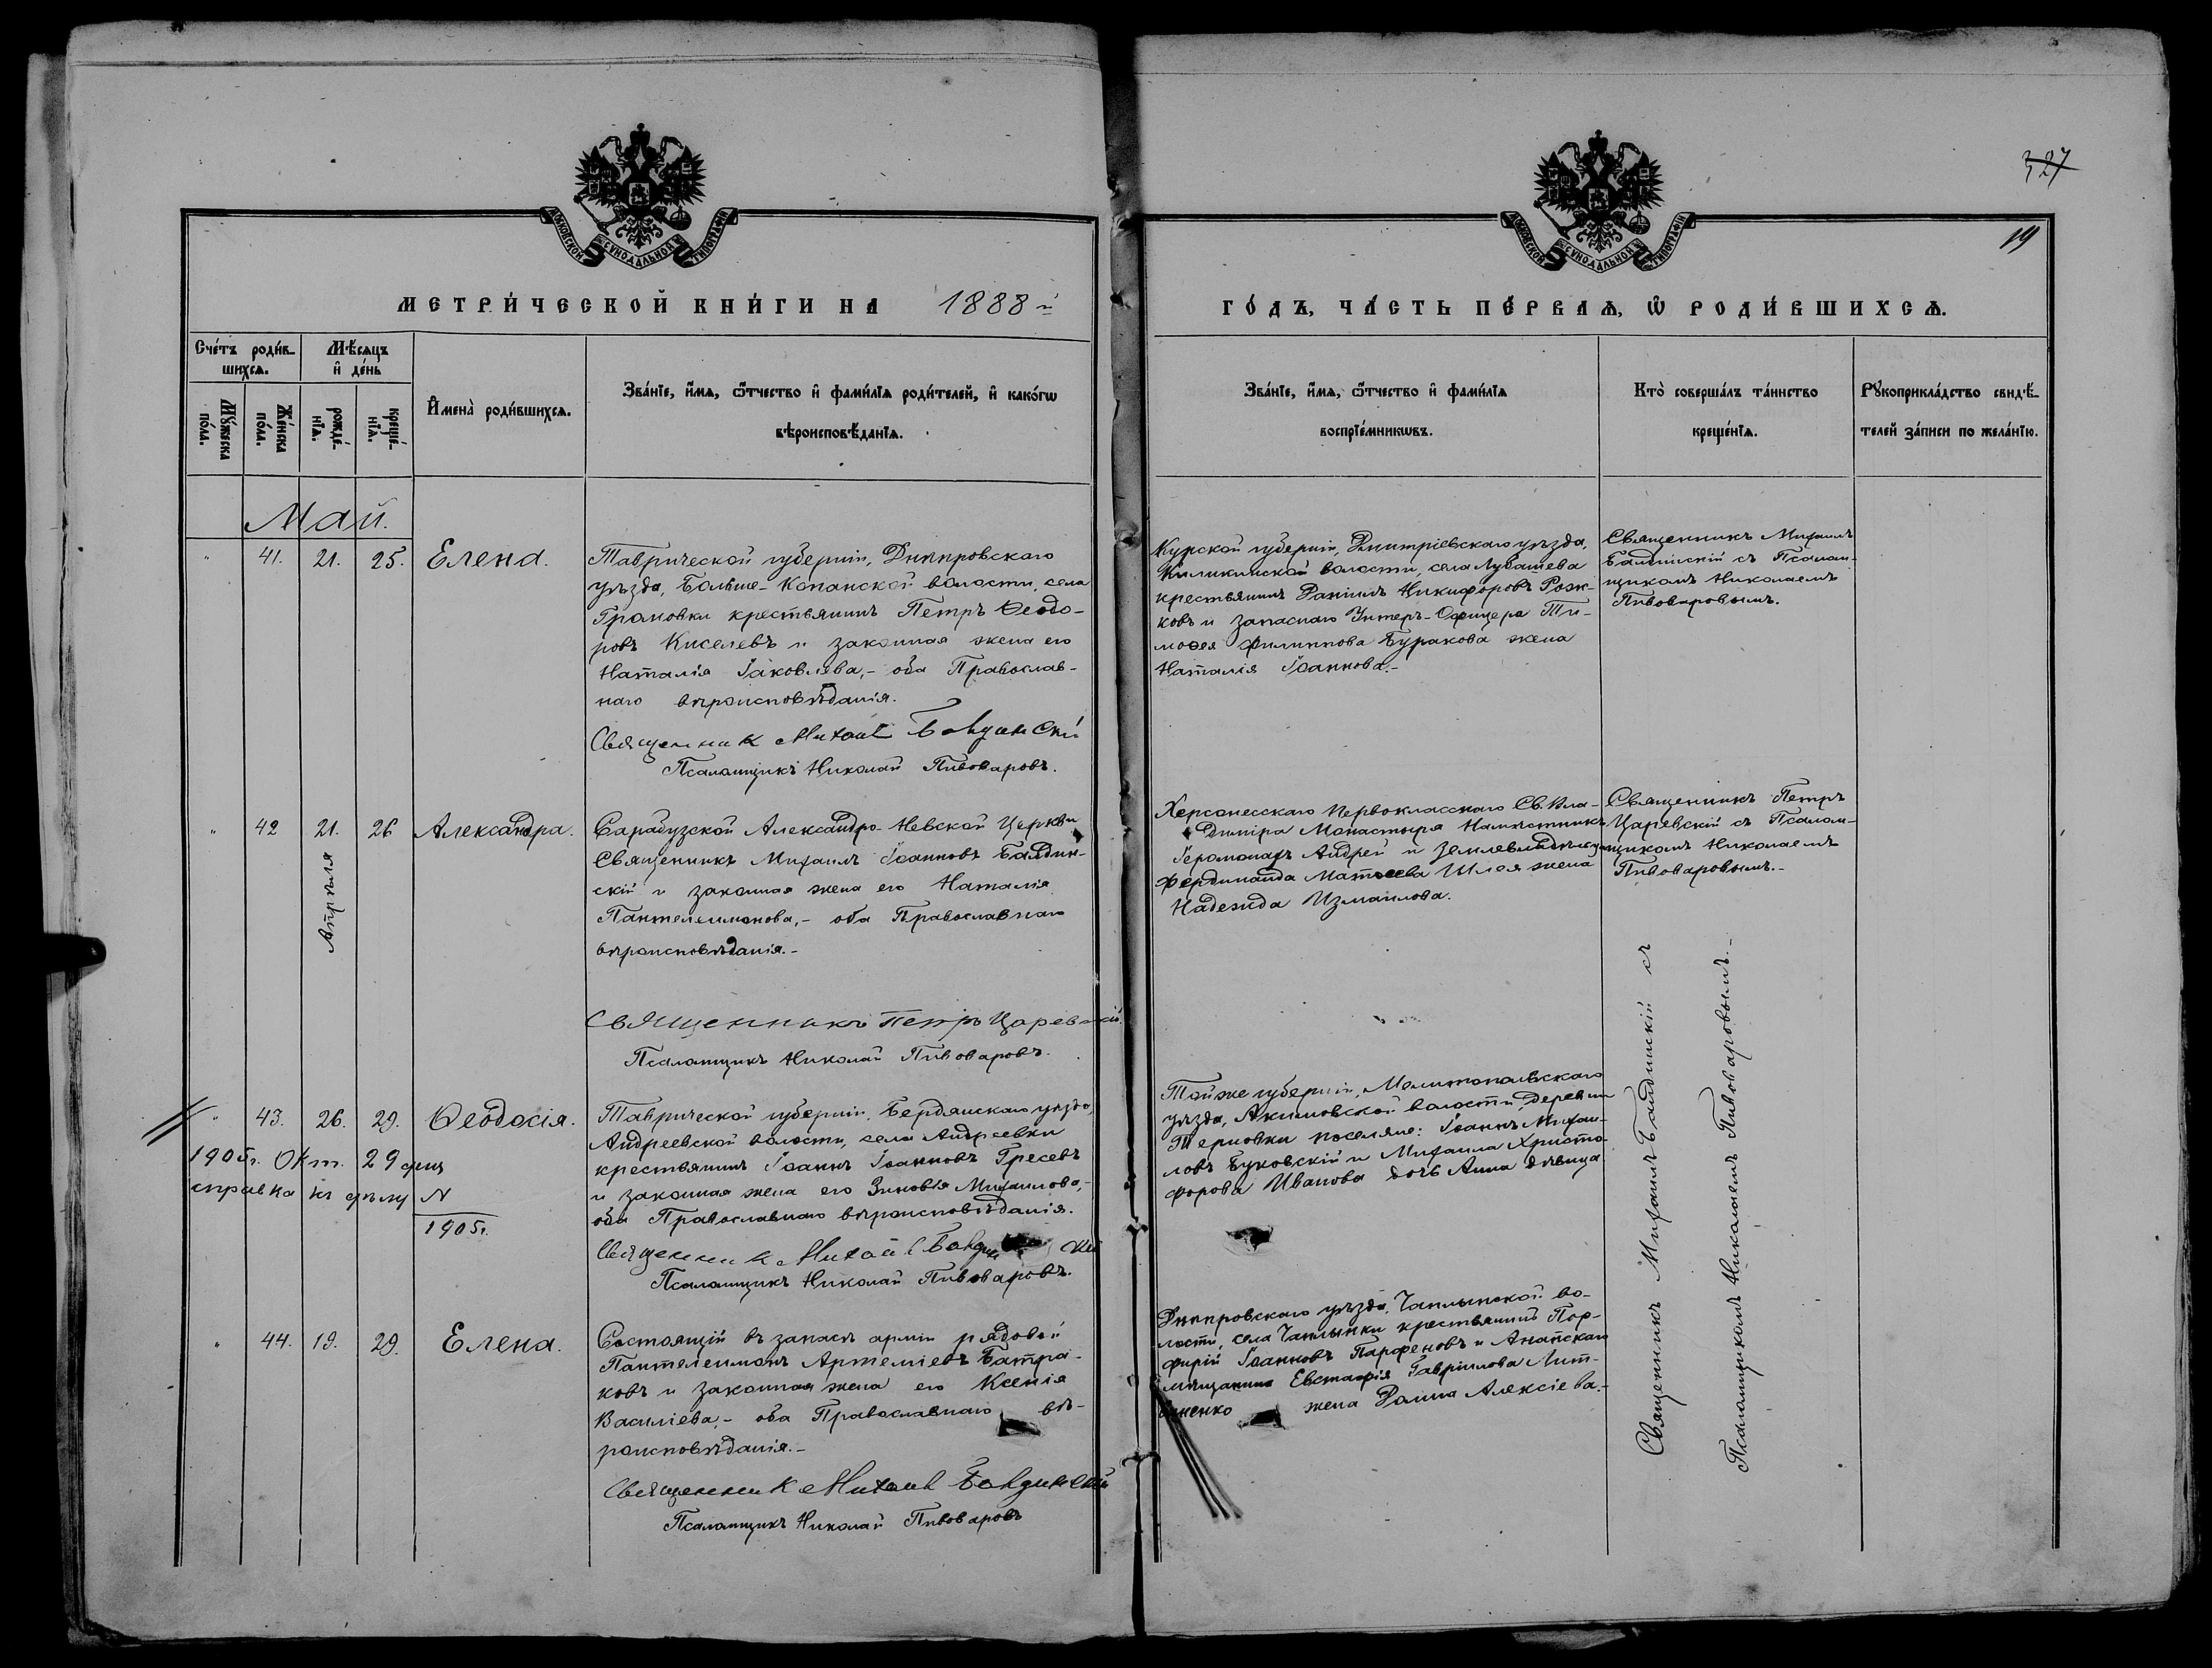 327
19
МОСКОВСКОЙ СѴНОДАЛЬНОЙ ТИПОГРАФІИ
МОСКОВСКОЙ СѴНОДАЛЬНОЙ ТИПОГРАФІИ
МЕТРИ́ЧЕСКОЙ КНИ́ГИ НА 1888й
ГО́ДЪ, ЧА́СТЬ ПЕ́РВАѦ, Ѡ҆ РОДИ́ВШИХСѦ.
Сче́тъ роди́в-
шихсѧ.
Мꙋ́жеска по́ла.
Же́нска по́ла.
Мѣ́сѧцъ
и҆ де́нь
рожде́-нїѧ.
креще́-нїѧ.
И҆мена̀ роди́вшихсѧ.
Зва́нїе, и҆́мѧ, ѻ҆́тчество и҆ фами́лїѧ роди́телей, и҆ како́гѡ
вѣроисповѣ́данїѧ.
Зва́нїе, и҆́мѧ, ѻ҆́тчество и҆ фами́лїѧ
воспрїе́мникѡвъ.
Кто̀ соверша́лъ та́инство
креще́нїѧ.
Рꙋкоприкла́дство свидѣ́-
телей за́писи по жела́нїю.
Май.
" 41. 21. 25. Елена.
Таврической губерніи, Днѣпровскаго
уѣзда, Больше-Копанской волости, села
Громовки крестьянинъ Петръ Ѳеодо-
ровъ Киселевъ и законная жена его
Наталія Іаковлева,- оба Православ-
наго вѣроисповѣданія.
Священник Михаил Балдинскій
Псаломщикъ Николай Пивоваровъ.
Курской губерніи, Дмитріевскаго уѣзда,
волости, села Лубашева
крестьянинъ Даніилъ Никифоровъ Рож-
ковъ и запаснаго Унтеръ-Офицера Ти-
моѳея Филиппова Буракова жена
Наталія Іоаннова.-
Священникъ Михаилъ
Балдинскій съ Псалом-
щикомъ Николаемъ
Пивоваровымъ.
" 42 21. 26 Александра.
Апрѣля
Сарабузской Александро-Невской Церкви
Священникъ Михаилъ Іоанновъ Балдин-
скій и законная жена его Наталія
Пантелеимонова,- оба Православнаго
вѣроисповѣданія.-
Священникъ Петръ Царевскій.
Псаломщикъ Николай Пивоваровъ.
Херсонесскаго Первокласснаго Св. Вла-
диміра Монастыря Намѣстникъ
Іеромонахъ Андрей и землевладѣльца
Фердинанда Матѳеева Шлея жена
Надежда Измаилова.
Священникъ Петръ
Царевскій съ Псалом-
щикомъ Николаемъ
Пивоваровымъ.-
" 43. 26. 29. Ѳеодосія.
1905г. Окт. 29 дня
справка къ дѣлу N
1905г.
Таврической губерніи, Бердянскаго уѣзда,
Андреевской волости, села Андреевки
крестьянинъ Іоаннъ Іоанновъ Гресевъ
и законная жена его Зиновія Михаилова,-
оба Православнаго вѣроисповѣданія.
Священник Михаил Балдинскій
Псаломщикъ Николай Пивоваровъ.
Той же губерніи, Мелитопольскаго
уѣзда, Акимовской волости, деревни
Терновки поселяне: Іоаннъ Михаи-
ловъ Буковскій и Михаила Христо-
форова Иванова дочь Анна дѣвица
" 44. 19. 29. Елена.
Состоящій въ запасѣ арміи рядовой
Пантелеимонъ Артеміевъ Батра-
ковъ и законная жена его Ксенія
Василіева,- оба Православнаго вѣ-
роисповѣданія.-
Священник Михаил Балдинскій
Псаломщикъ Николай Пивоваровъ
Днѣпровскаго уѣзда, Чаплынской во-
лости, села Чаплынки крестьянинъ Пор-
фирій Іоанновъ Парфеновъ и Анапскаго
мѣщанина Евстафія Гавріилова Лит-
виненко жена Домна Алексіева.-
Священникъ Михаилъ Балдинскій съ
Псаломщикомъ Николаемъ Пивоваровымъ.-